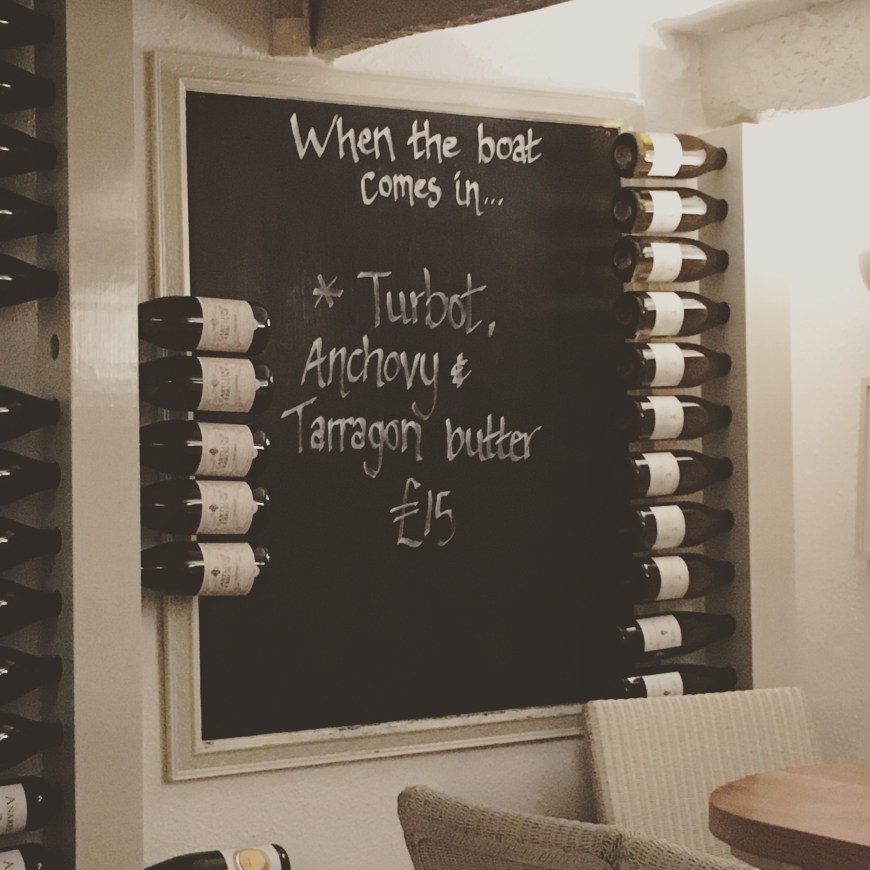 When the boat
comes in...
* Turbot,
Anchovy &
Tarragon butter
£15